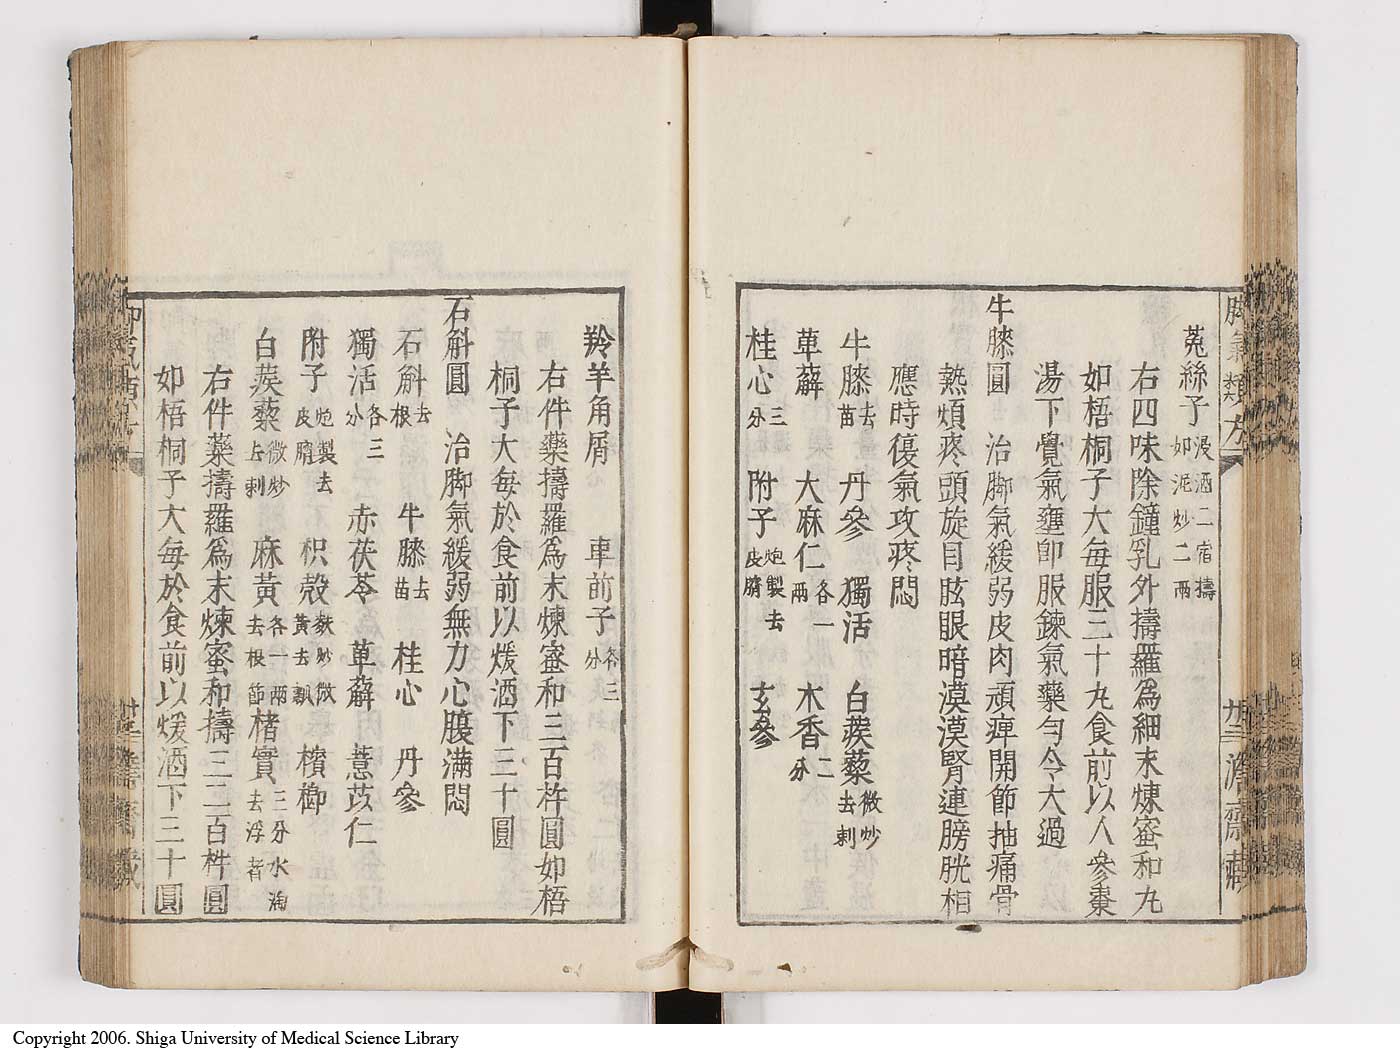 脚氣類方
廿三 澹齋藏
菟絲子浸酒二宿擣如泥炒二兩
右四味除鐘乳外擣羅為細末煉蜜和丸
如梧桐子大每服三十丸食前以人參棗
湯下覺氣壅卽服鍊氣藥勻令大過
牛膝圓 治脚氣緩弱皮肉頑痺開節抽痛骨
熱煩疼頭旋目眩眼暗漠漠腎連膀胱相
應時復氣攻疼悶
牛膝去苗 丹參 獨活 白蒺藜微炒去刺
萆薢 大麻仁各一兩 木香二分
桂心三分 附子炮製去皮臍 玄參
羚羊角屑 車前子各三分
右件藥擣羅為末煉蜜和三百杵圓如梧
桐子大每於食前以煖酒下三十圓
石斛圓 治脚氣緩弱無力心腹滿悶
石斛去根 牛膝去苗 桂心 丹參
獨活各三分 赤茯苓 萆薢 薏苡仁
附子炮製去皮臍 枳殼麩炒微黃去瓤 檳榔
白蒺藜微炒去刺 麻黃各一兩去根節 楮實三分水淘去浮者
右件藥擣羅為末煉蜜和擣三二百杵圓
如梧桐子大每於食前以煖酒下三十圓